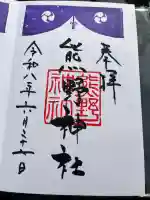 奉拝
熊野神社
熊野
神社
令和八年六月二十一日